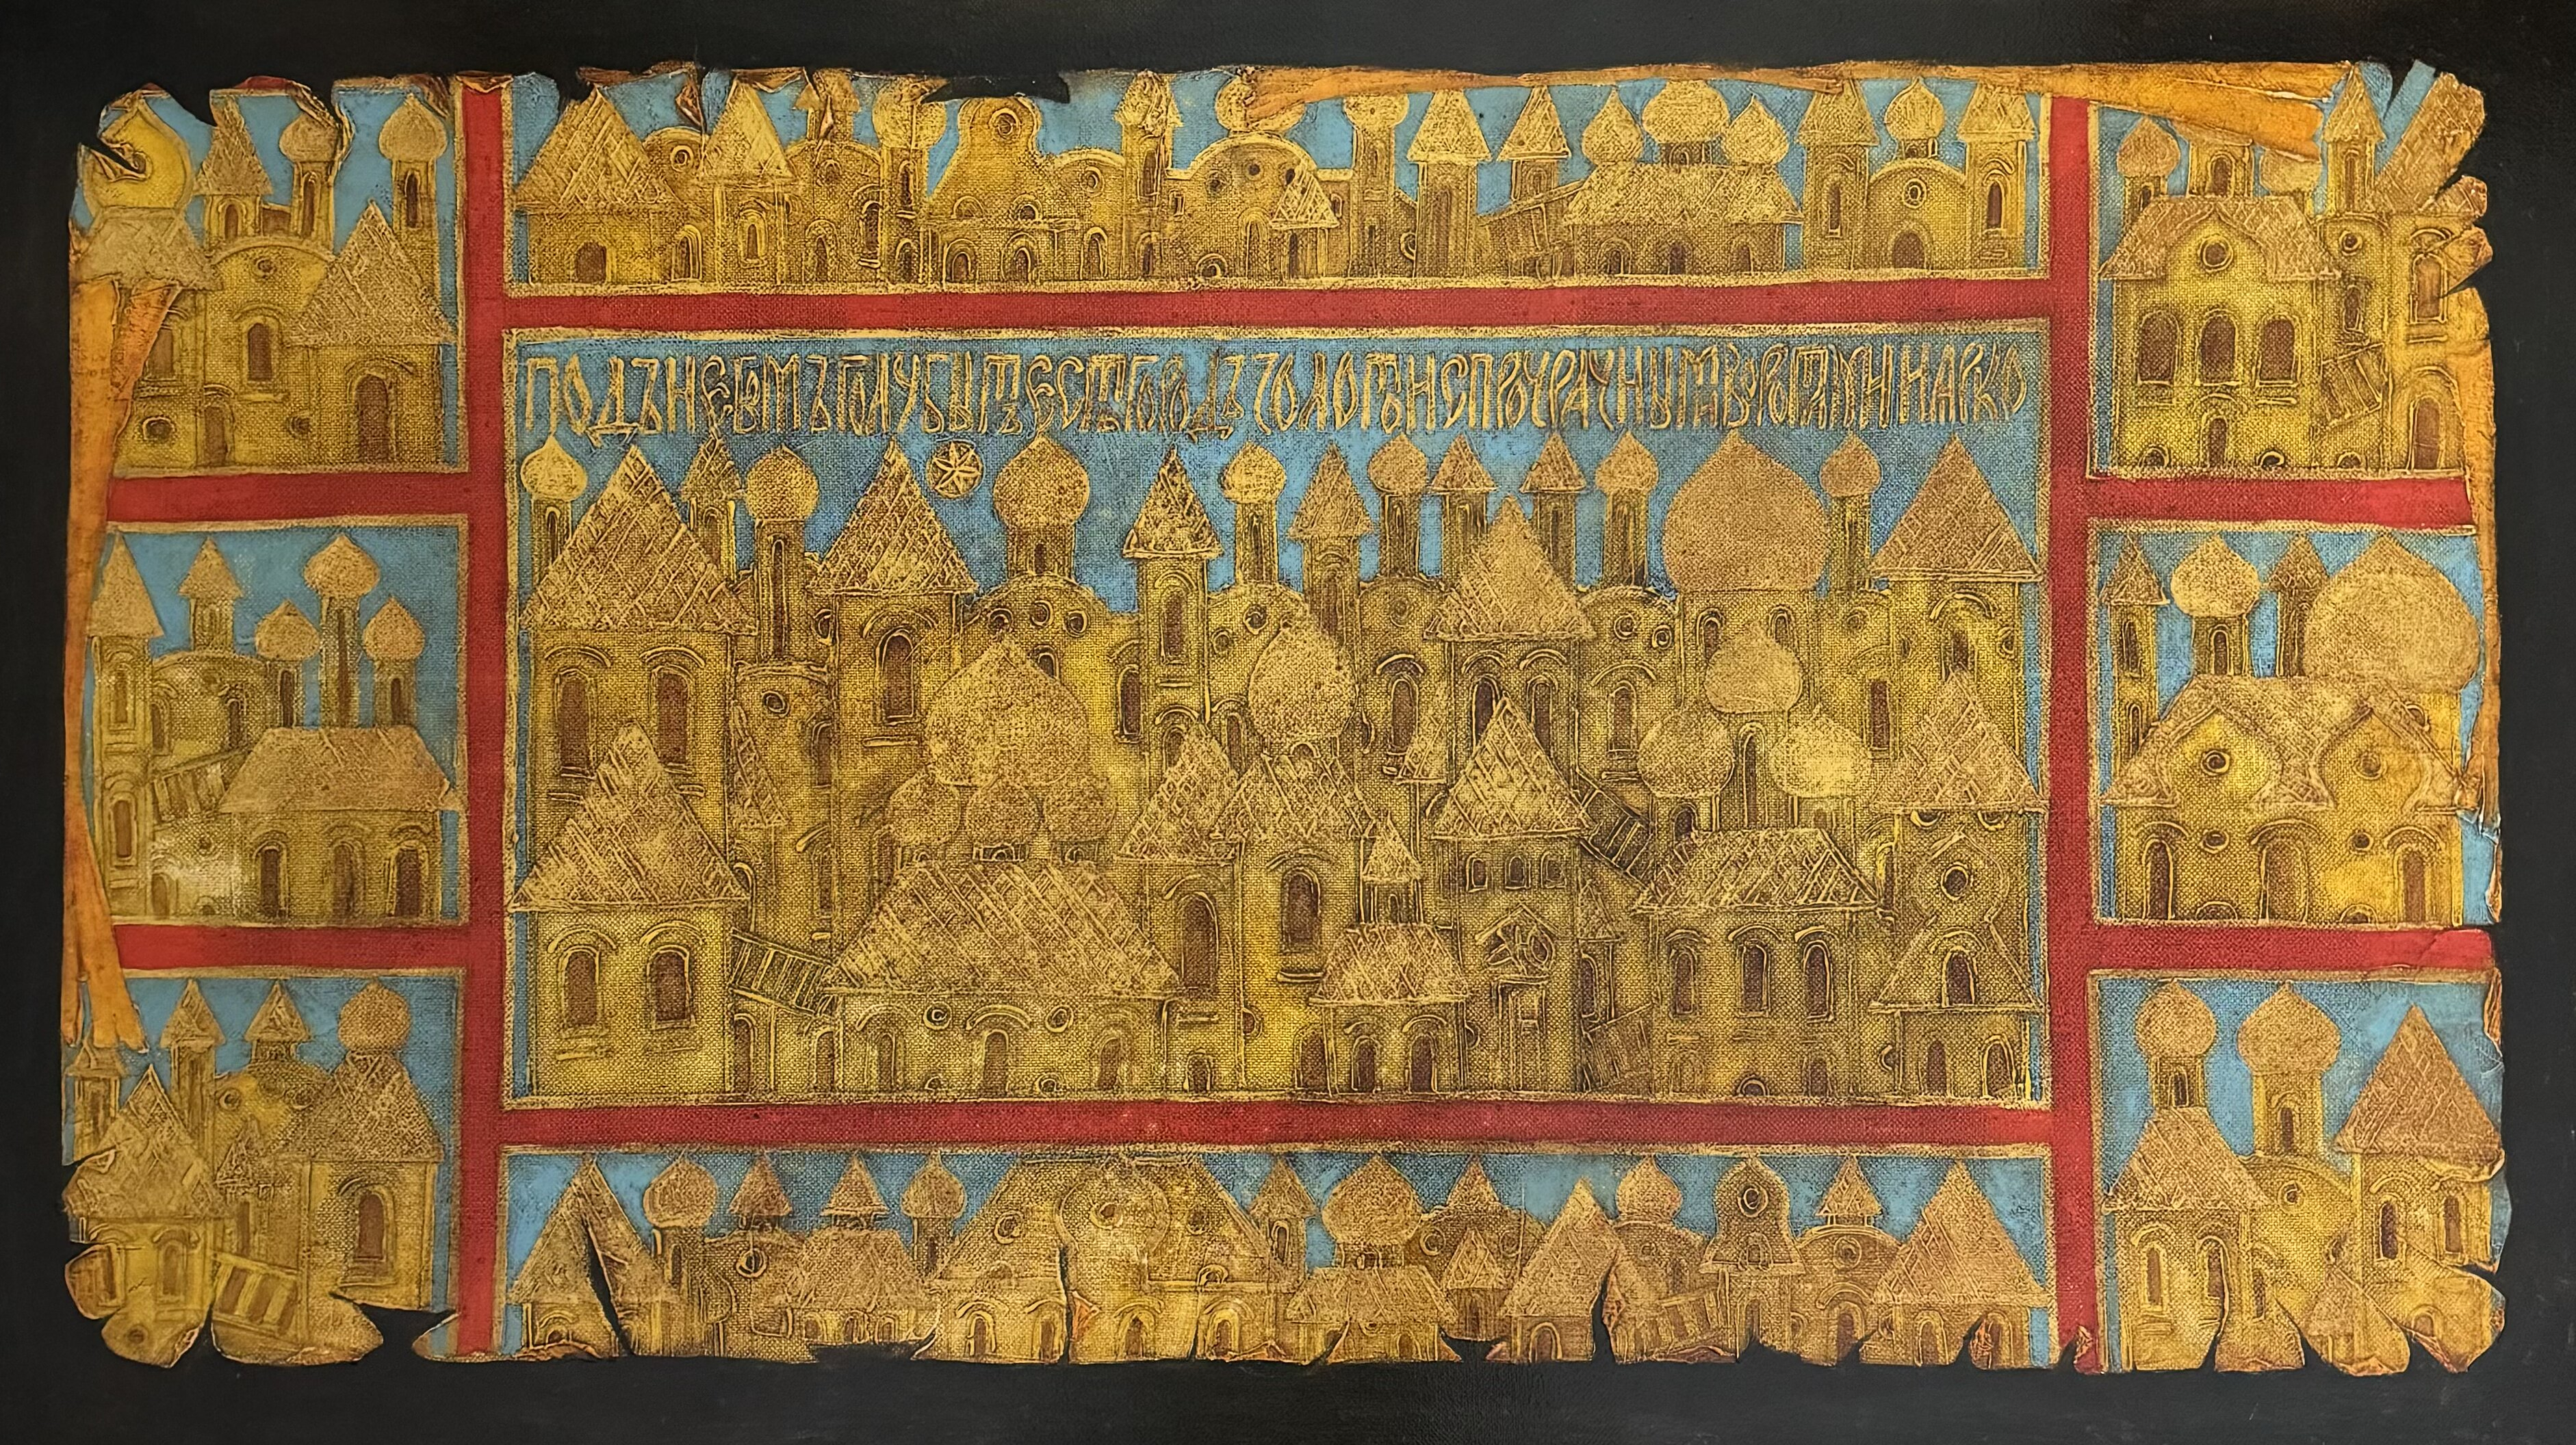 ПОДЪ НЕБМЪ ГОЛУБЫМЪ ЕСТЬ ГОРОДЪ ЗОЛОТОИ С ПРОЗРАЧНЫМИ ВОРОТАМИ И ЯРКО